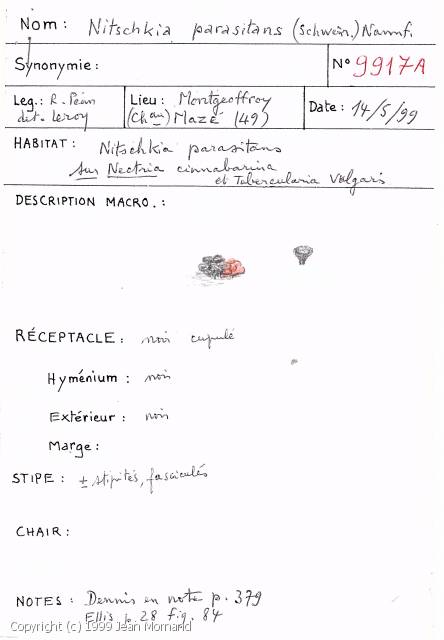 Nom : Nitschkia parasitans (Schwein.) Nannf.
Synonymie :
N° 9917A
Leg. : R. Péan
det. Leroy
Lieu : Montgeoffroy
(Chau) Mazé (49)
Date : 14/5/99
HABITAT : Nitschkia parasitans
sur Nectria cinnabarina
et Tubercularia Vulgaris
DESCRIPTION MACRO. :
RÉCEPTACLE : noir cupulé
Hyménium : noir
Extérieur : noir
Marge :
STIPE : ± stipités, fasciculés
CHAIR :
NOTES : Dennis en note p. 379
Ellis p. 28 fig. 84
Copyright (c) 1999 Jean Mornand